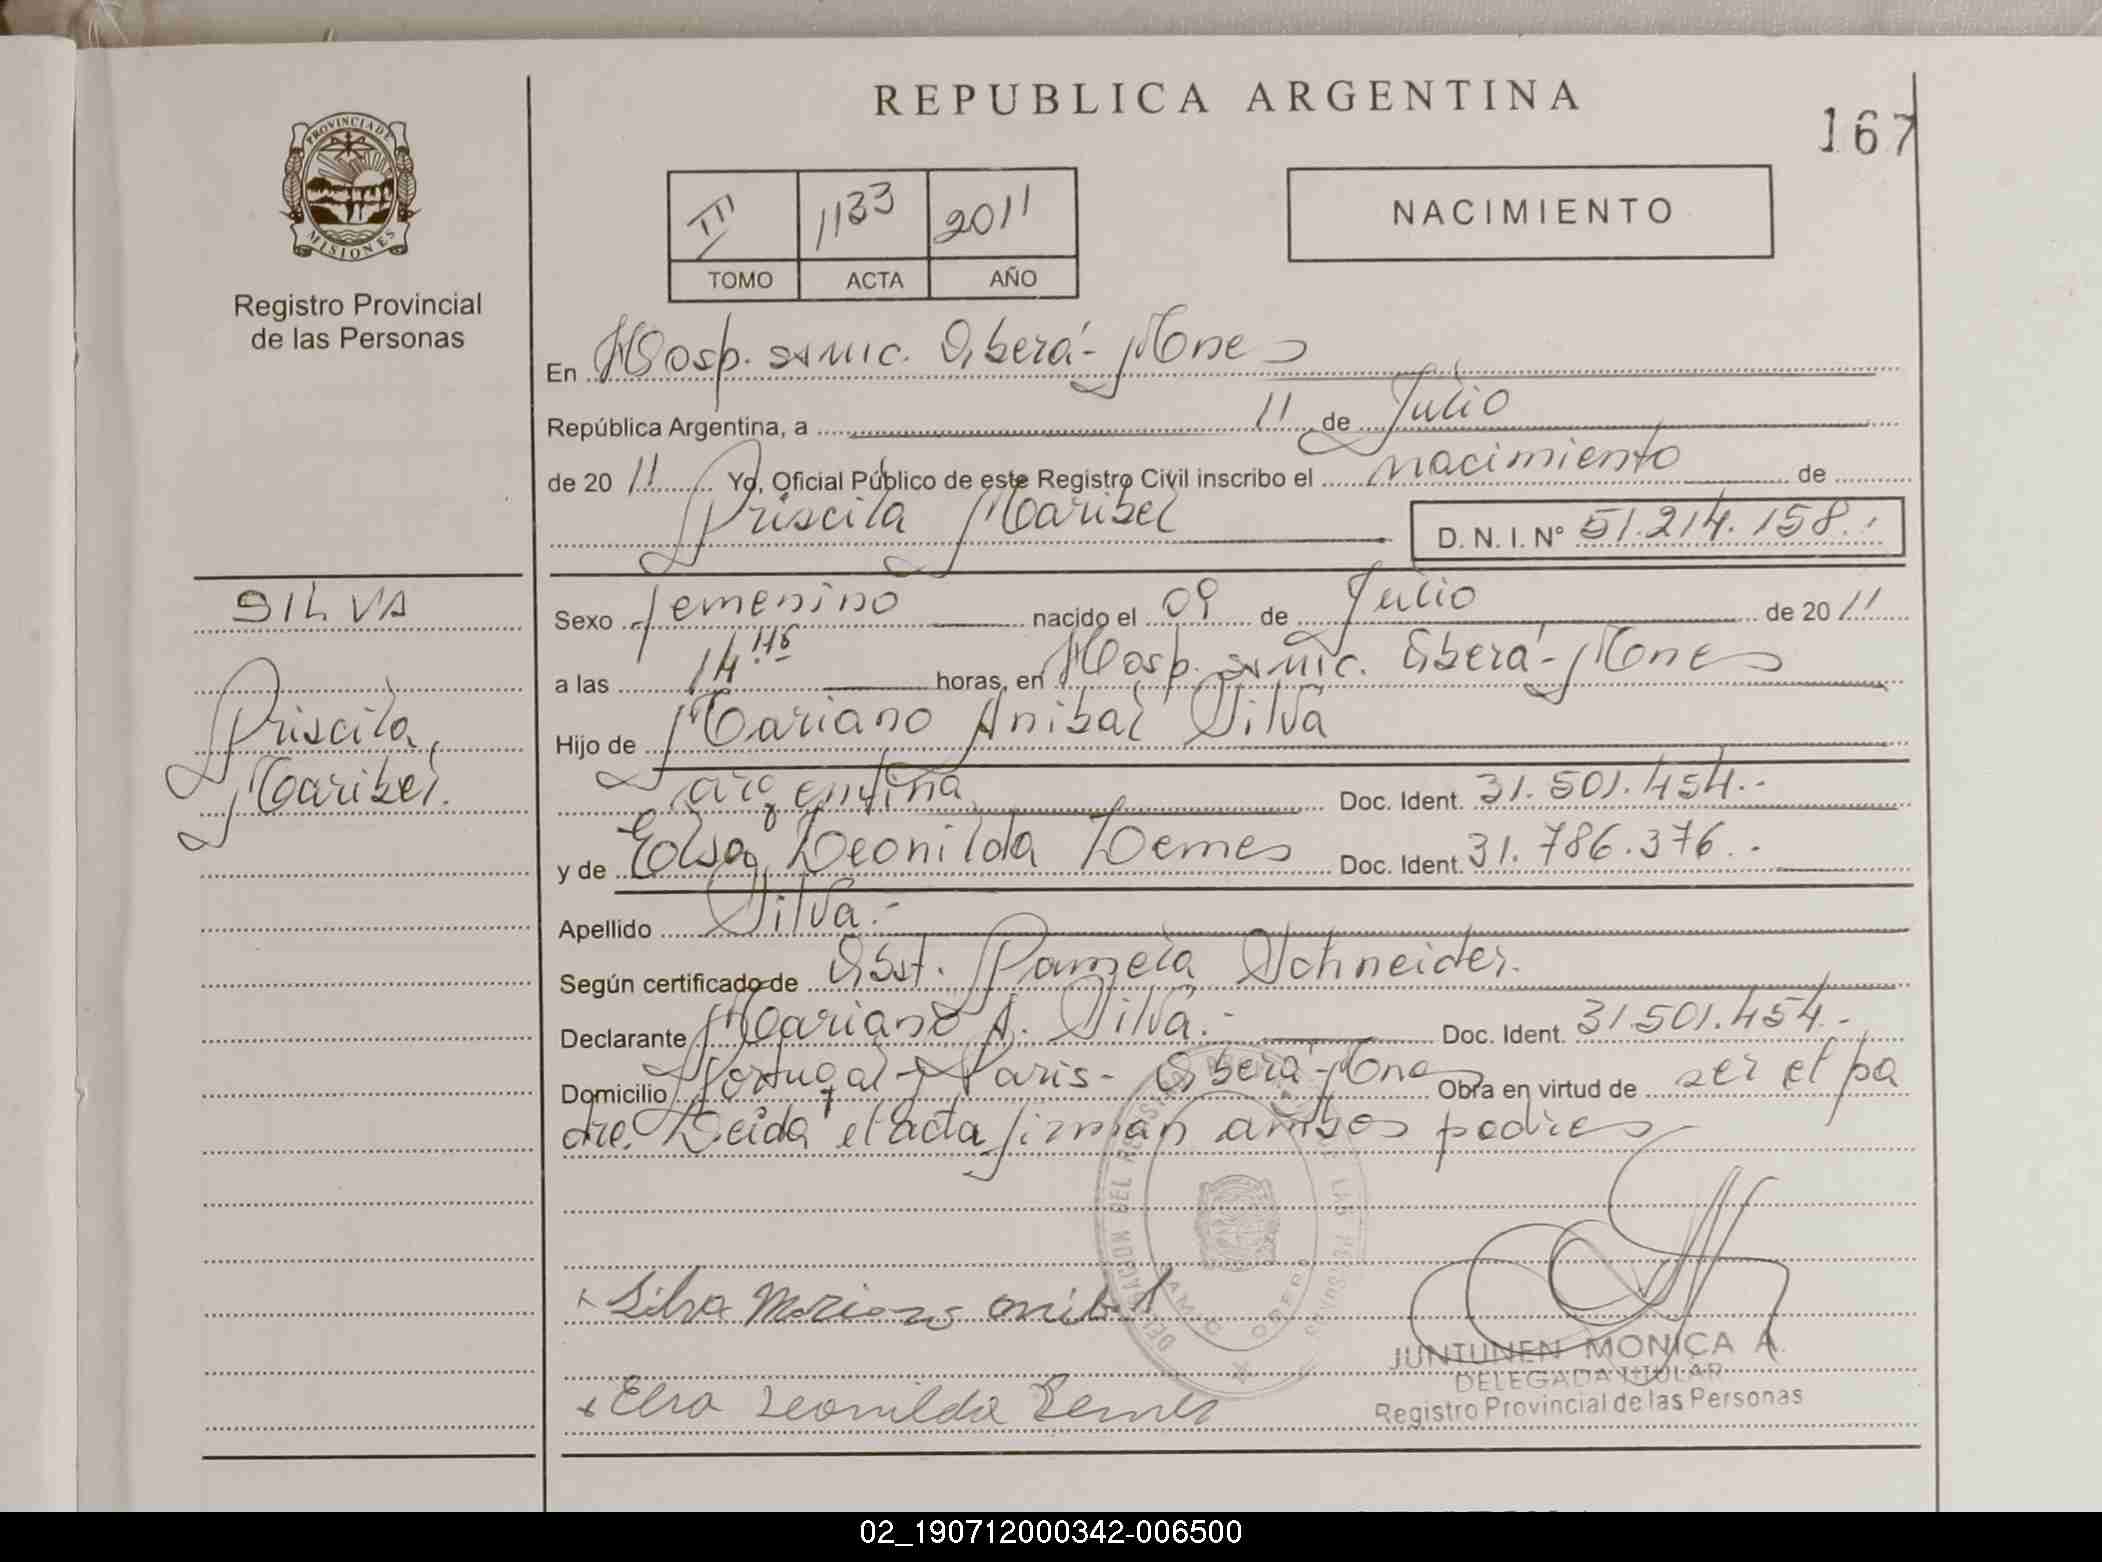 REPUBLICA ARGENTINA
167
PROVINCIA DE
MISIONES
Registro Provincial
de las Personas
III 1133 2011
TOMO ACTA AÑO
NACIMIENTO
En Hosp. samic. Oberá - Mnes
República Argentina, a 11 de Julio
de 2011 Yo, Oficial Público de este Registro Civil inscribo el nacimiento de
Priscila Maribel D. N. I. Nº 51.214.158.-
SILVA
Priscila
Maribel.
Sexo femenino nacido el 09 de Julio de 2011
a las 14 horas, en Hosp. samic. Oberá - Mnes
Hijo de Mariano Anibal Silva
argentina Doc. Ident. 31.501.454.-
y de Elsa Leonilda Lemes Doc. Ident. 31.786.376.-
Apellido Silva.-
Según certificado de Obst. Pamela Schneider.
Declarante Mariano A. Silva.- Doc. Ident. 31.501.454.-
Domicilio Portugal y Paris - Oberá - Mnes Obra en virtud de ser el pa
dre. Leida el acta firman ambos padres
DELEGACION DEL REGISTRO PROVINCIAL DE LAS PERSONAS
OBERA
Silva Mariano anibal
Elsa Leonilda Lemes
JUNTUNEN MONICA A.
DELEGADA TITULAR
Registro Provincial de las Personas
02_190712000342-006500